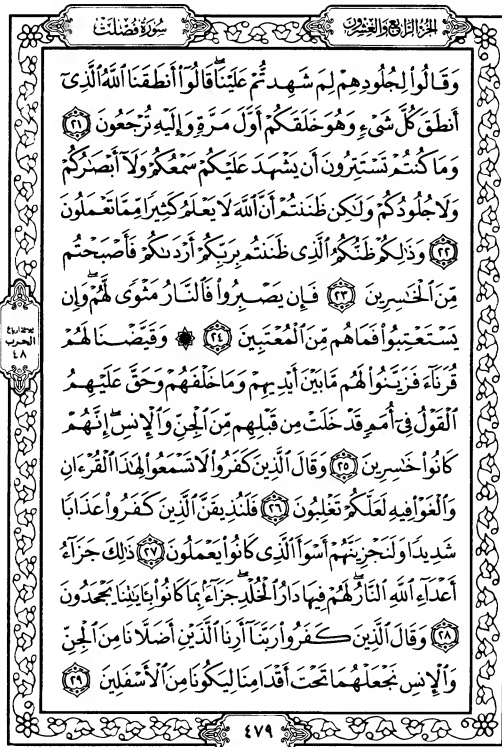 الجزء الرابع والعشرون
سورة فصلت
وَقَالُوا۟ لِجُلُودِهِمْ لِمَ شَهِدتُّمْ عَلَيْنَا ۖ قَالُوٓا۟ أَنطَقَنَا ٱللَّهُ ٱلَّذِىٓ
أَنطَقَ كُلَّ شَىْءٍ وَهُوَ خَلَقَكُمْ أَوَّلَ مَرَّةٍ وَإِلَيْهِ تُرْجَعُونَ ٢١
وَمَا كُنتُمْ تَسْتَتِرُونَ أَن يَشْهَدَ عَلَيْكُمْ سَمْعُكُمْ وَلَآ أَبْصَٰرُكُمْ
وَلَا جُلُودُكُمْ وَلَٰكِن ظَنَنتُمْ أَنَّ ٱللَّهَ لَا يَعْلَمُ كَثِيرًا مِّمَّا تَعْمَلُونَ
٢٢ وَذَٰلِكُمْ ظَنُّكُمُ ٱلَّذِى ظَنَنتُم بِرَبِّكُمْ أَرْدَىٰكُمْ فَأَصْبَحْتُم
مِّنَ ٱلْخَٰسِرِينَ ٢٣ فَإِن يَصْبِرُوا۟ فَٱلنَّارُ مَثْوًى لَّهُمْ ۖ وَإِن
يَسْتَعْتِبُوا۟ فَمَا هُم مِّنَ ٱلْمُعْتَبِينَ ٢٤ ۞ وَقَيَّضْنَا لَهُمْ
قُرَنَآءَ فَزَيَّنُوا۟ لَهُم مَّا بَيْنَ أَيْدِيهِمْ وَمَا خَلْفَهُمْ وَحَقَّ عَلَيْهِمُ
ٱلْقَوْلُ فِىٓ أُمَمٍ قَدْ خَلَتْ مِن قَبْلِهِم مِّنَ ٱلْجِنِّ وَٱلْإِنسِ ۖ إِنَّهُمْ
كَانُوا۟ خَٰسِرِينَ ٢٥ وَقَالَ ٱلَّذِينَ كَفَرُوا۟ لَا تَسْمَعُوا۟ لِهَٰذَا ٱلْقُرْءَانِ
وَٱلْغَوْا۟ فِيهِ لَعَلَّكُمْ تَغْلِبُونَ ٢٦ فَلَنُذِيقَنَّ ٱلَّذِينَ كَفَرُوا۟ عَذَابًا
شَدِيدًا وَلَنَجْزِيَنَّهُمْ أَسْوَأَ ٱلَّذِى كَانُوا۟ يَعْمَلُونَ ٢٧ ذَٰلِكَ جَزَآءُ
أَعْدَآءِ ٱللَّهِ ٱلنَّارُ ۖ لَهُمْ فِيهَا دَارُ ٱلْخُلْدِ ۖ جَزَآءًۢ بِمَا كَانُوا۟ بِـَٔايَٰتِنَا يَجْحَدُونَ
٢٨ وَقَالَ ٱلَّذِينَ كَفَرُوا۟ رَبَّنَآ أَرِنَا ٱلَّذَيْنِ أَضَلَّانَا مِنَ ٱلْجِنِّ
وَٱلْإِنسِ نَجْعَلْهُمَا تَحْتَ أَقْدَامِنَا لِيَكُونَا مِنَ ٱلْأَسْفَلِينَ ٢٩
الحزب
٤٨
٤٧٩